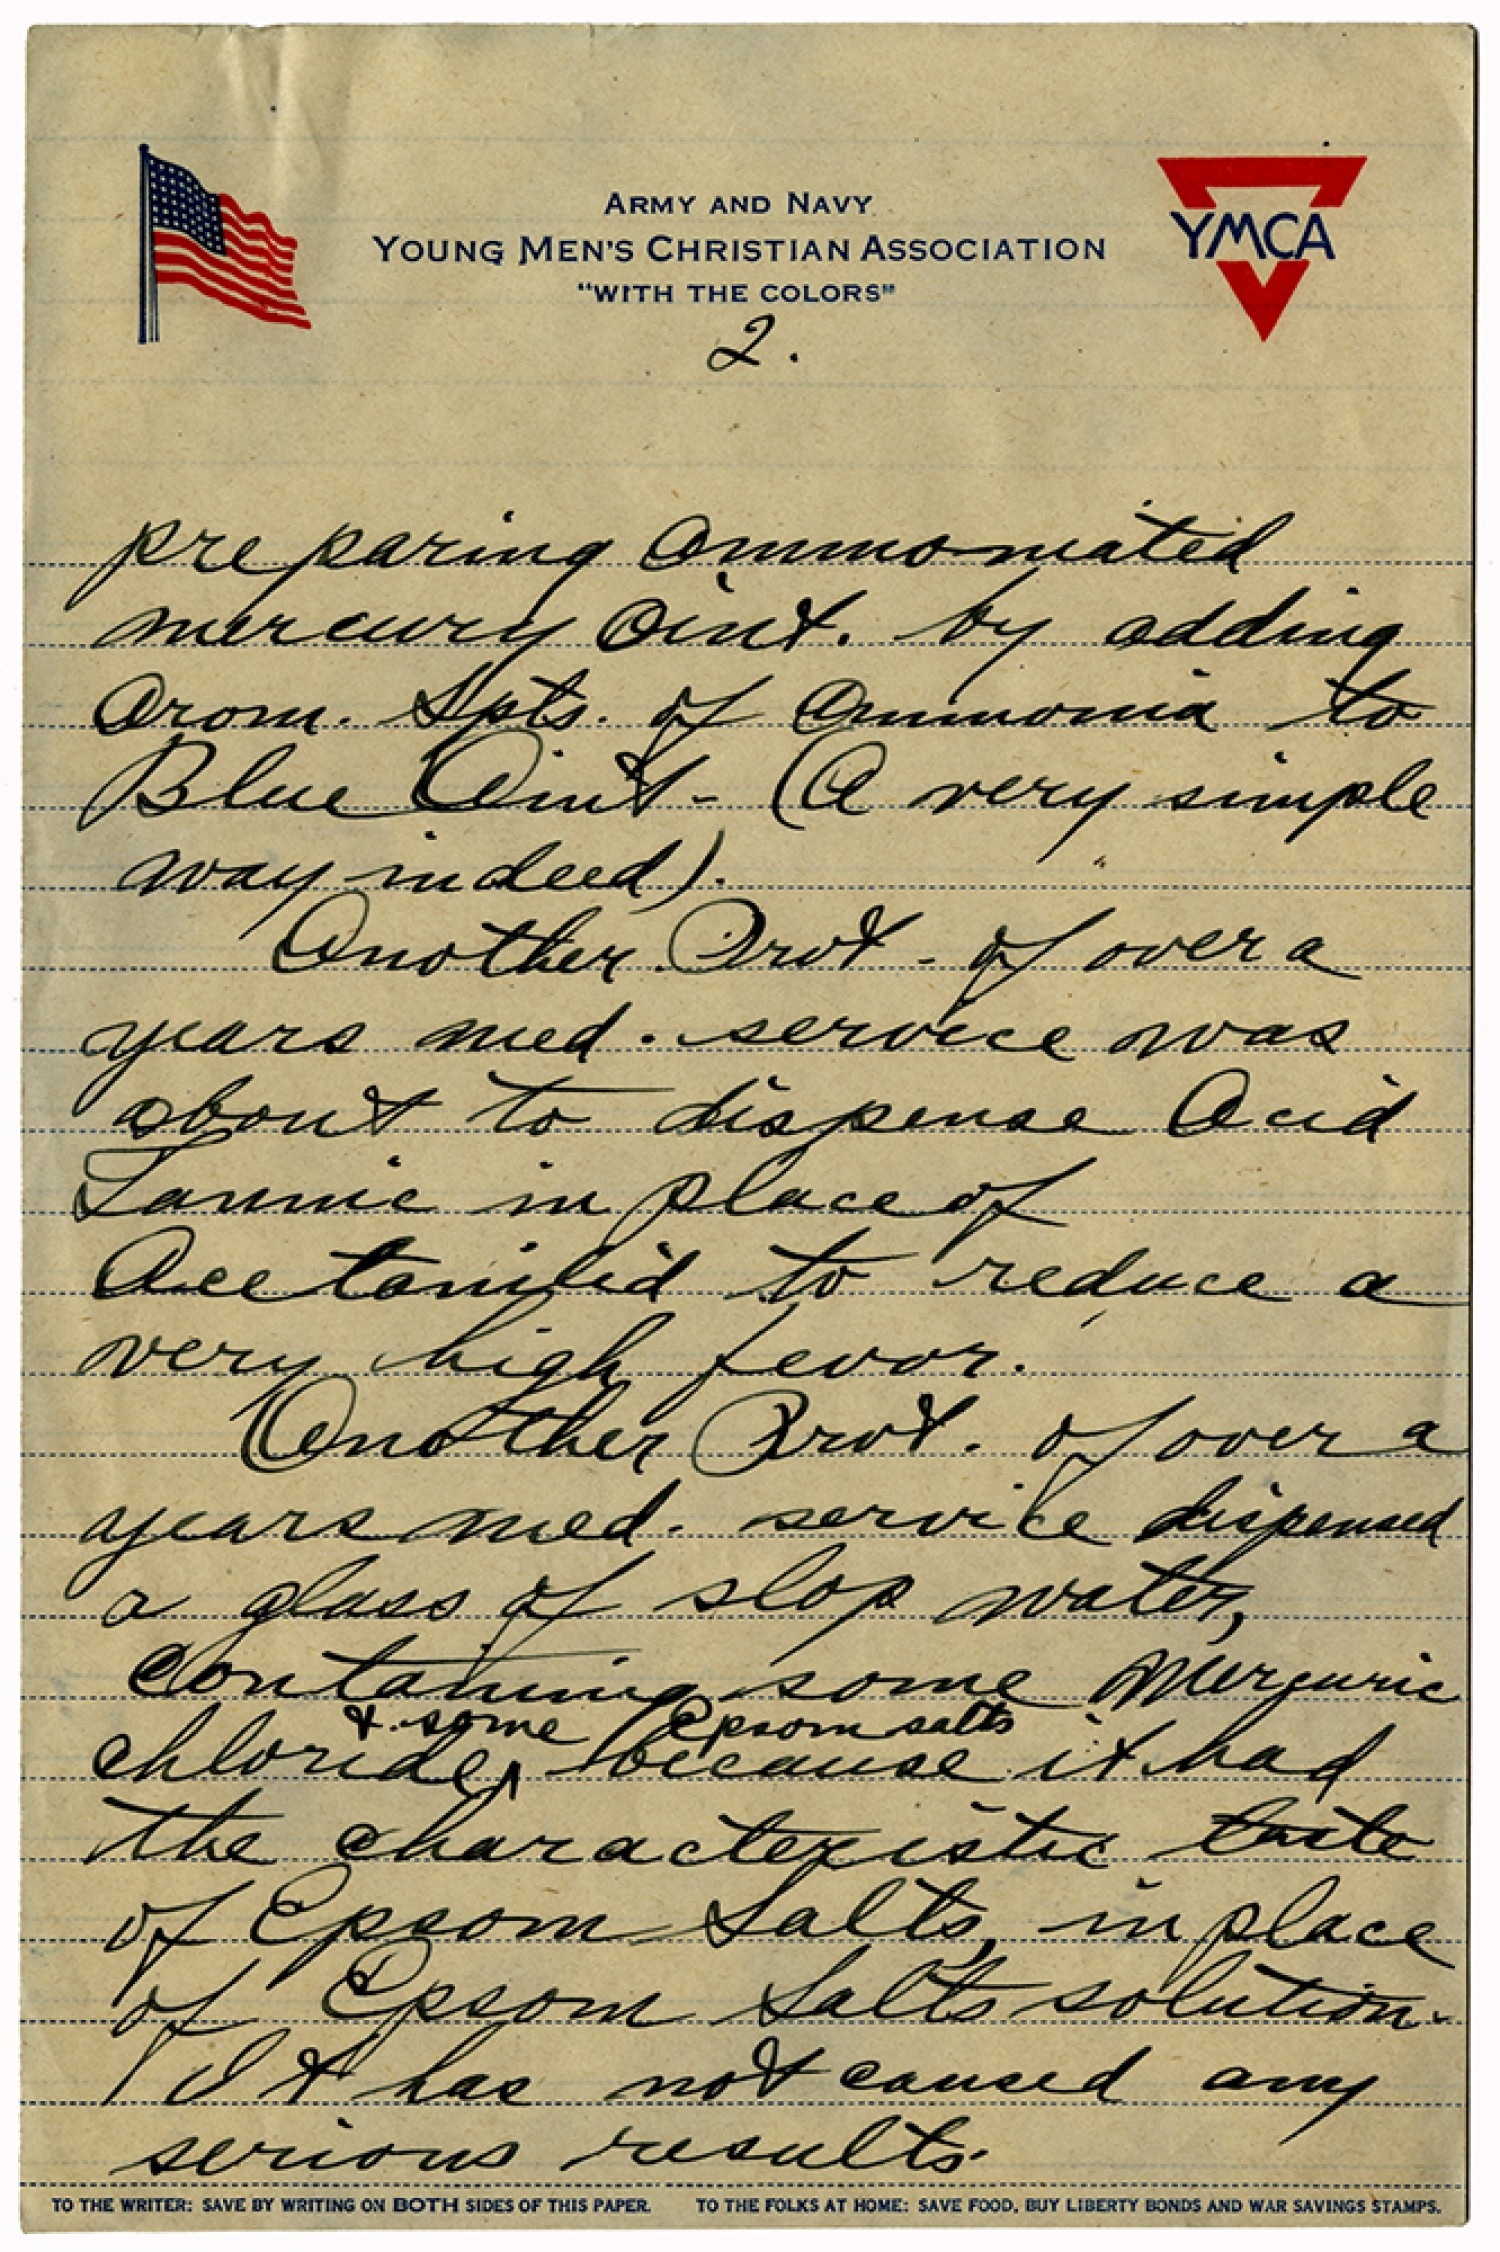 ARMY AND NAVY
YOUNG MEN'S CHRISTIAN ASSOCIATION
"WITH THE COLORS"
YMCA
2.
preparing Ammoniated
mercury Oint. by adding
Arom. Spts. of Ammonia to
Blue Oint - (A very simple
way indeed).
Another Pvt - of over a
years med. service was
about to dispense Acid
Tannic in place of
Acetanilid to reduce a
very high fevor.
Another Pvt. of over a
years med. service dispensed
a glass of slop water,
containing some Mercuric
& some Epsom salts
chloride, because it had
the characteristic taste
of Epsom Salts, in place
of Epsom Salts solution-
It has not caused any
serious results.
TO THE WRITER: SAVE BY WRITING ON BOTH SIDES OF THIS PAPER. TO THE FOLKS AT HOME: SAVE FOOD, BUY LIBERTY BONDS AND WAR SAVINGS STAMPS.